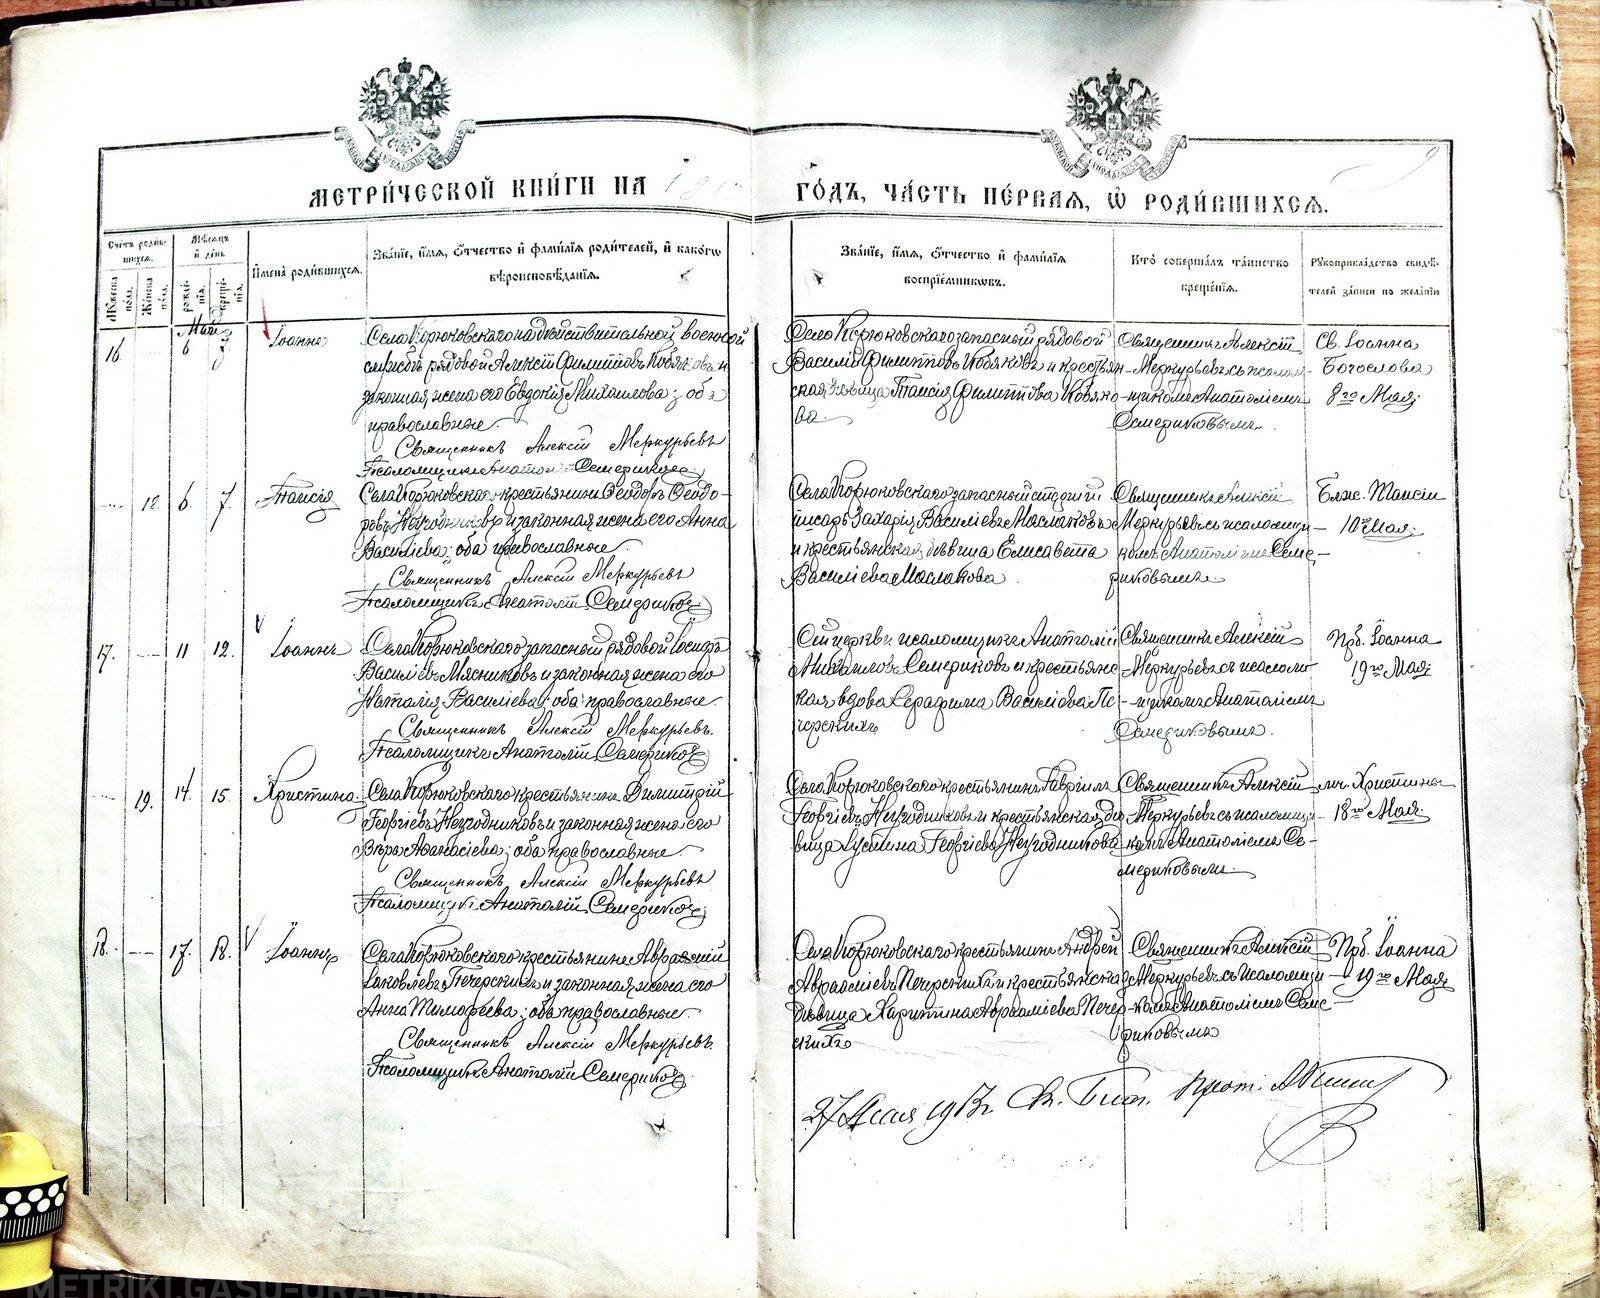 МЕТРИЧЕСКОЙ КНИГИ НА
ГОДЪ, ЧАСТЬ ПЕРВАЯ, Ѡ РОДИВШИХСЯ.
9
Счетъ родившихся.
Мужеска пола.
Женска пола.
Мѣсяцъ и день
рожденія.
крещенія.
Имена родившихся.
Званіе, имя, отчество и фамилія родителей, и какогѡ
вѣроисповѣданія.
Званіе, имя, отчество и фамилія
воспріемниковъ.
Кто совершалъ таинство
крещенія.
Рукоприкладство свидѣ-
телей записи по желанію
Май
16
6
Іоаннъ
Села Корюковскаго на дѣйствительной военной
службѣ рядовой Алексій Филипповъ Кобяковъ и
законная жена его Евдокія Михаилова; оба
православные.
Священникъ Алексій Меркурьевъ
Псаломщикъ Анатолій Семериковъ
Села Корюковскаго запасный рядовой
Василій Филипповъ Кобяковъ и крестьян-
ская дѣвица Таисія Филиппова Кобяко-
ва.
Священникъ Алексій
Меркурьевъ съ псалом-
щикомъ Анатоліемъ
Семериковымъ.
Св. Іоанна
Богослова
8го Мая;
18
6
7
Таисія
Села Корюковскаго крестьянинъ Ѳеодоръ Ѳеодо-
ровъ Неугодниковъ и законная жена его Анна
Василіева; оба православные.
Священникъ Алексій Меркурьевъ
Псаломщикъ Анатолій Семериковъ
Села Корюковскаго запасный
писарь Захарія Василіевъ Маслаковъ
и крестьянская дѣвица Елисавета
Василіева Маслакова
Священникъ Алексій
Меркурьевъ съ псаломщи-
комъ Анатоліемъ Семе-
риковымъ.
Блж. Таисіи
10го Мая;
17.
11
12.
Іоаннъ
Села Корюковскаго запасный рядовой Іосифъ
Василіевъ Мясниковъ и законная жена его
Наталія Василіева; оба православные.
Священникъ Алексій Меркурьевъ.
Псаломщикъ Анатолій Семериковъ
Сей церкви псаломщикъ Анатолій
Михаиловъ Семериковъ и крестьянс
кая вдова Серафима Василіева Пе
черскихъ
Священникъ Алексій
Меркурьевъ съ псалом
щикомъ Анатоліемъ
Семериковымъ.
Прб. Іоанна
19го Мая;
19.
14.
15.
Христина
Села Корюковскаго крестьянинъ Димитрій
Георгіевъ Неугодниковъ и законная жена его
Вѣра Аѳанасіева; оба православные.
Священникъ Алексій Меркурьевъ
Псаломщикъ Анатолій Семериковъ
Села Корюковскаго крестьянинъ Гавріилъ
Георгіевъ Неугодниковъ и крестьянская дѣ
вица Георгіева Неугодникова
Священникъ Алексій
Меркурьевъ съ псаломщи-
комъ Анатоліемъ Се-
мериковымъ.
мч. Христины
18го Мая;
18.
17.
18.
Іоаннъ
Села Корюковскаго крестьянинъ Авраамій
Іаковлевъ Печерскихъ и законная жена его
Анна Тимоѳеева; оба православные.
Священникъ Алексій Меркурьевъ.
Псаломщикъ Анатолій Семериковъ
Села Корюковскаго крестьянинъ Андрей
Авраміевъ Печерскихъ и крестьянская
дѣвица Харитина Авраміева Печер
скихъ
Священникъ Алексій
Меркурьевъ съ псаломщи-
комъ Анатоліемъ Семе-
риковымъ
Прб. Іоанна
19го Мая;
27 Мая 1913г. Прот.
METRIKI.GASU-URAL.RU